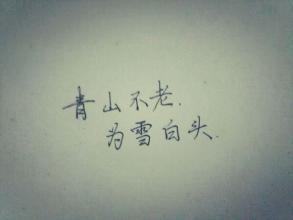 青山不老.
为雪白头.